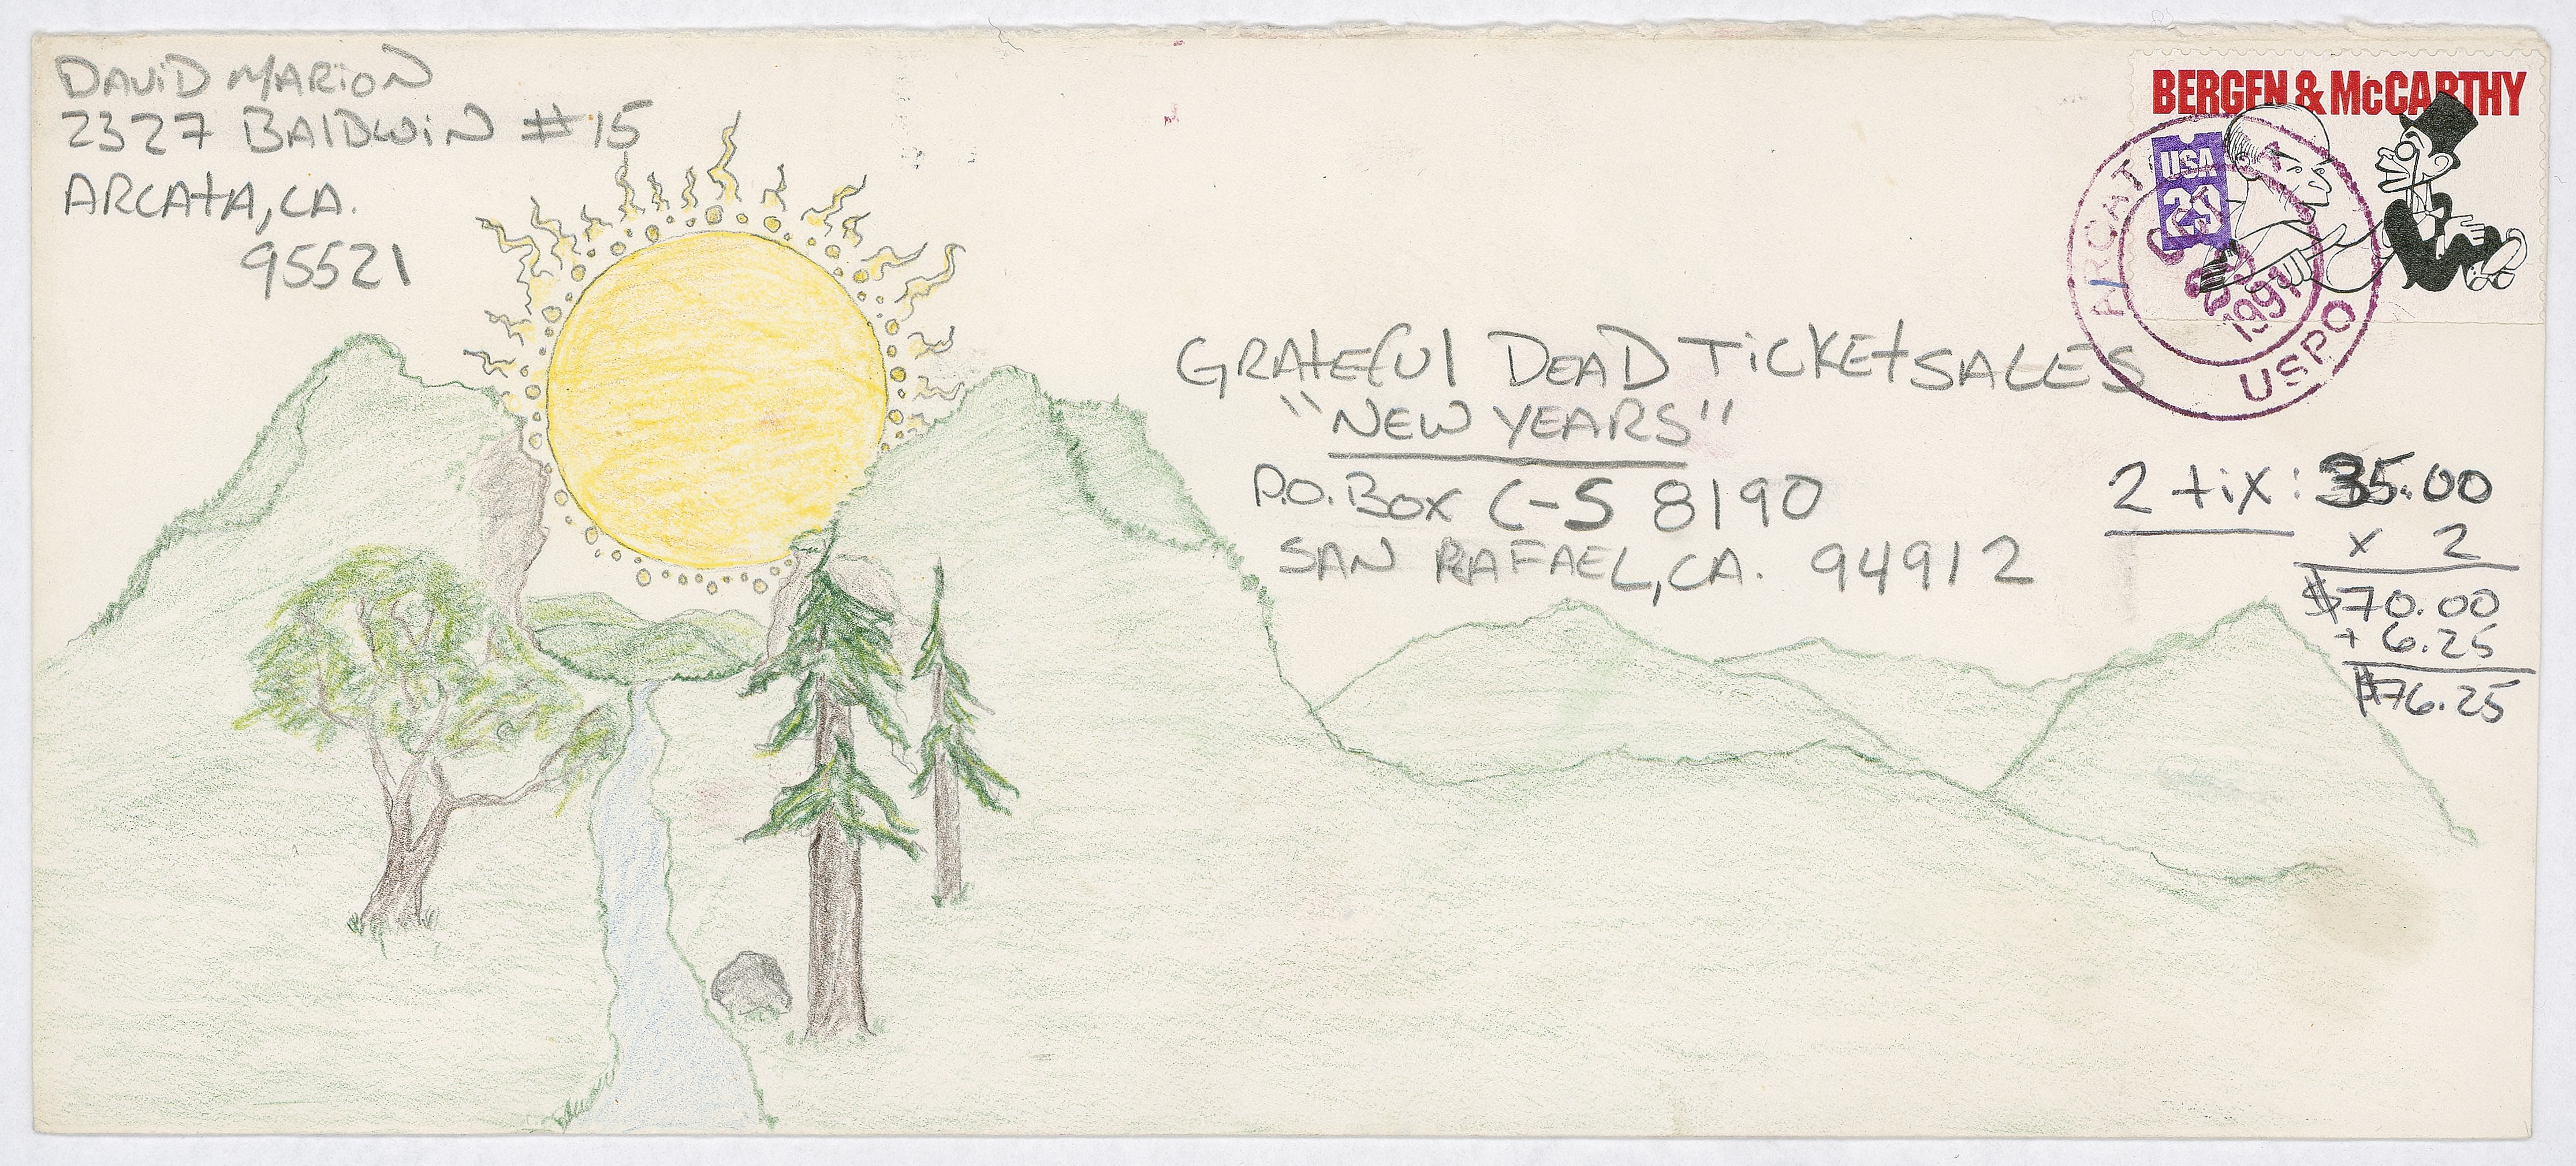 DAViD MARiON
2327 BAlDWiN #15
ARCAtA, CA.
95521
BERGEN & McCARTHY
USA
29
ARCATA
1991
USPO
GRAtEful DEAD TiCKEt SALES
"NEW YEARS"
P.O. Box C-S 8190
SAN RAFAEL, CA. 94912
2 tix: 35.00
x 2
$70.00
+ 6.25
$76.25